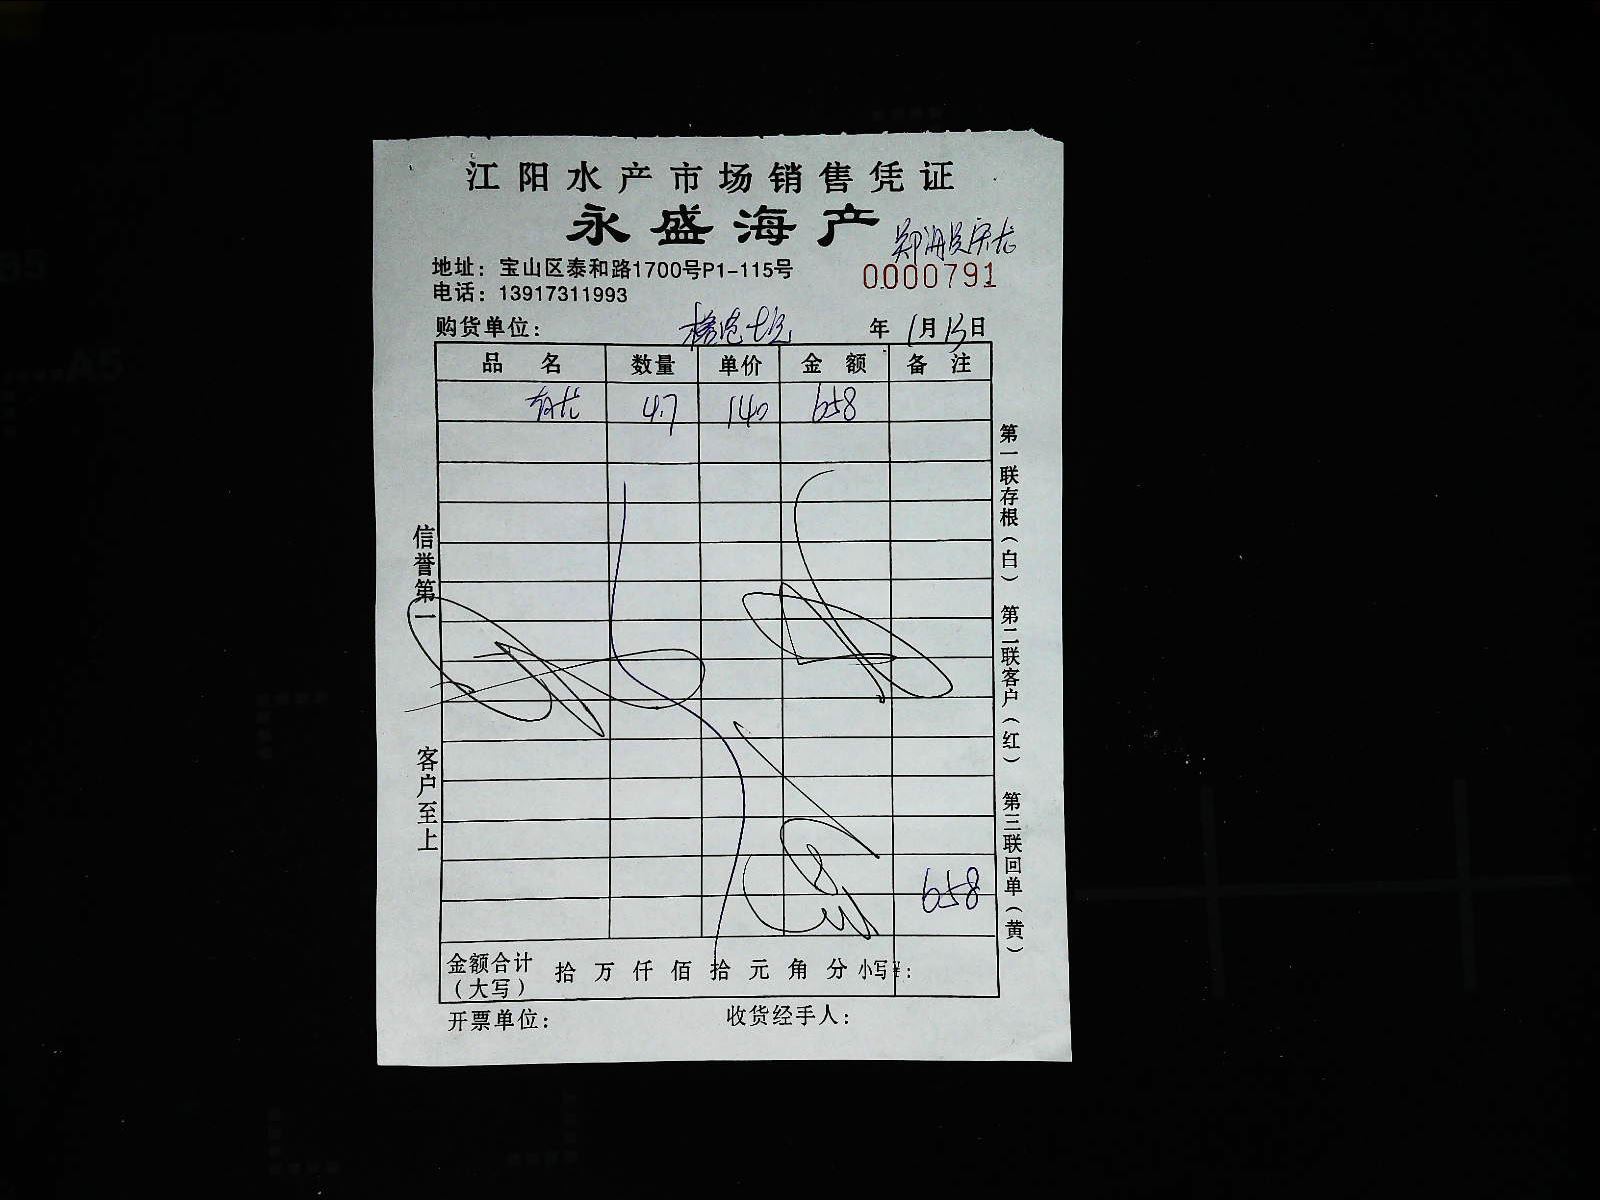 江阳水产市场销售凭证
永盛海产
地址：宝山区泰和路1700号P1-115号
0000791
电话：13917311993
购货单位： 年 1月13日
品 名 数量 单价 金 额 备 注
4.7 140 658
658
金额合计（大写） 拾 万 仟 佰 拾 元 角 分 小写¥：
开票单位： 收货经手人：
信誉第一 客户至上
第一联存根（白） 第二联客户（红） 第三联回单（黄）